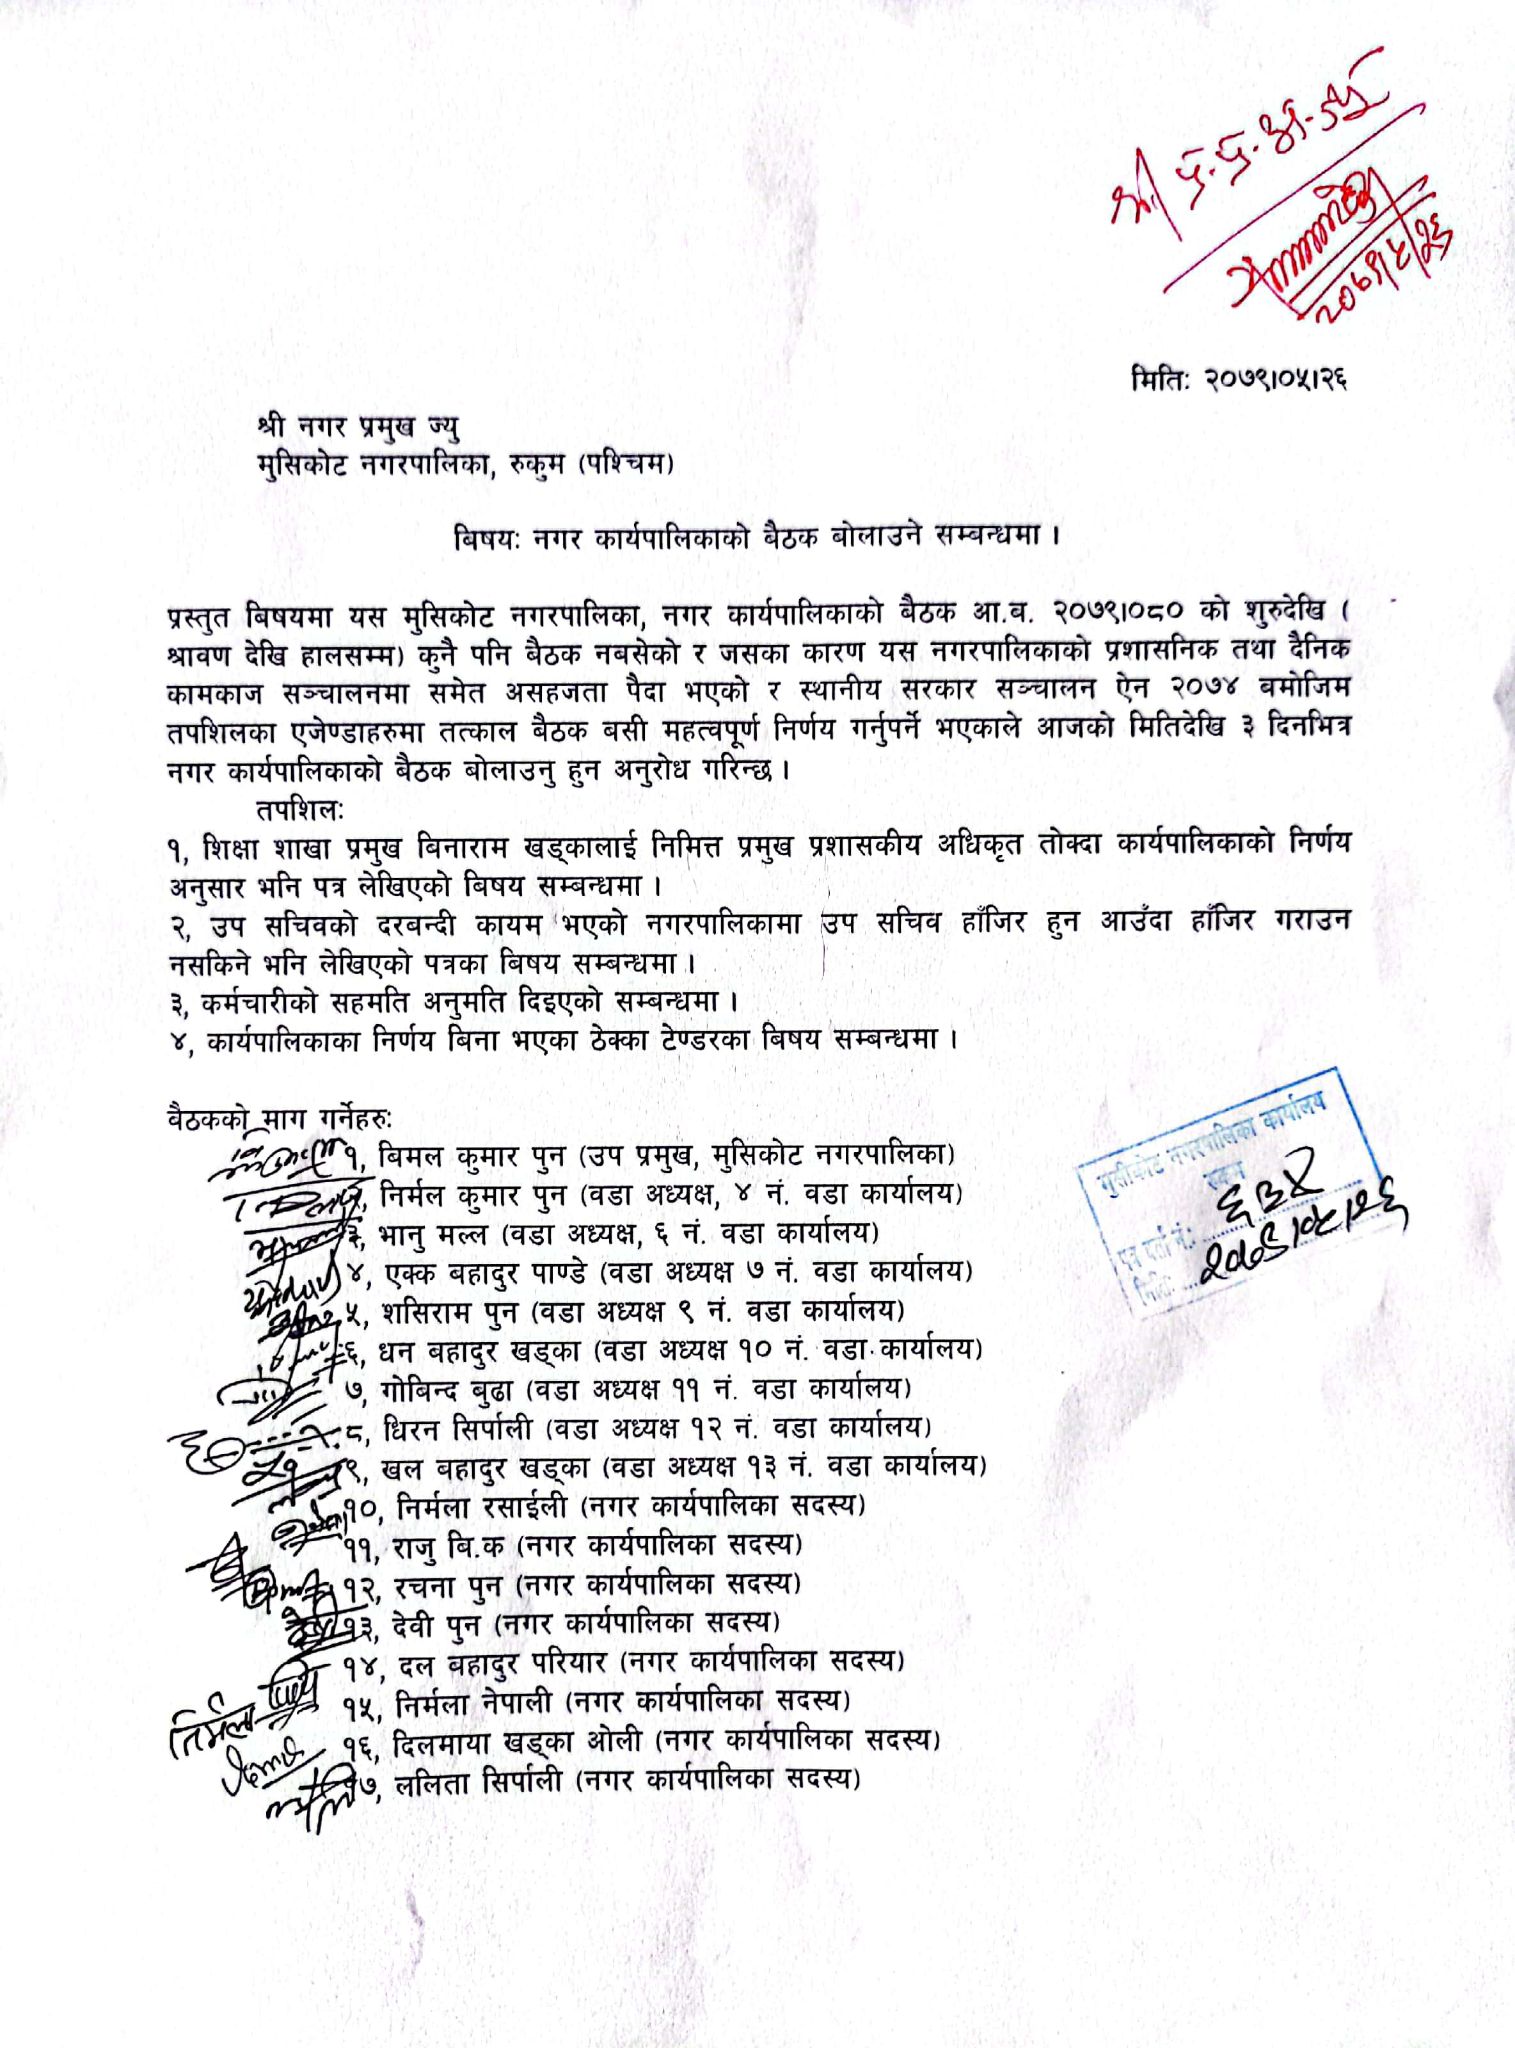 श्री प्र.प्र.अ. ज्यु
२०७९/५/२६
मिति: २०७९।०५।२६
श्री नगर प्रमुख ज्यु
मुसिकोट नगरपालिका, रुकुम (पश्चिम)
बिषय: नगर कार्यपालिकाको बैठक बोलाउने सम्बन्धमा ।
प्रस्तुत बिषयमा यस मुसिकोट नगरपालिका, नगर कार्यपालिकाको बैठक आ.ब. २०७९।०८० को शुरुदेखि (
श्रावण देखि हालसम्म) कुनै पनि बैठक नबसेको र जसका कारण यस नगरपालिकाको प्रशासनिक तथा दैनिक
कामकाज सञ्चालनमा समेत असहजता पैदा भएको र स्थानीय सरकार सञ्चालन ऐन २०७४ बमोजिम
तपशिलका एजेण्डाहरुमा तत्काल बैठक बसी महत्वपूर्ण निर्णय गर्नुपर्ने भएकाले आजको मितिदेखि ३ दिनभित्र
नगर कार्यपालिकाको बैठक बोलाउनु हुन अनुरोध गरिन्छ ।
तपशिल:
१, शिक्षा शाखा प्रमुख बिनाराम खड्कालाई निमित्त प्रमुख प्रशासकीय अधिकृत तोक्दा कार्यपालिकाको निर्णय
अनुसार भनि पत्र लेखिएको बिषय सम्बन्धमा ।
२, उप सचिवको दरबन्दी कायम भएको नगरपालिकामा उप सचिव हाँजिर हुन आउँदा हाँजिर गराउन
नसकिने भनि लेखिएको पत्रका बिषय सम्बन्धमा ।
३, कर्मचारीको सहमति अनुमति दिइएको सम्बन्धमा ।
४, कार्यपालिकाका निर्णय बिना भएका ठेक्का टेण्डरका बिषय सम्बन्धमा ।
बैठकको माग गर्नेहरु:
१, बिमल कुमार पुन (उप प्रमुख, मुसिकोट नगरपालिका)
निर्मल कुमार पुन (वडा अध्यक्ष, ४ नं. वडा कार्यालय)
३, भानु मल्ल (वडा अध्यक्ष, ६ नं. वडा कार्यालय)
४, एक्क बहादुर पाण्डे (वडा अध्यक्ष ७ नं. वडा कार्यालय)
५, शसिराम पुन (वडा अध्यक्ष ९ नं. वडा कार्यालय)
६, धन बहादुर खड्का (वडा अध्यक्ष १० नं. वडा कार्यालय)
७, गोबिन्द बुढा (वडा अध्यक्ष ११ नं. वडा कार्यालय)
८, धिरन सिर्पाली (वडा अध्यक्ष १२ नं. वडा कार्यालय)
९, खल बहादुर खड्का (वडा अध्यक्ष १३ नं. वडा कार्यालय)
१०, निर्मला रसाईली (नगर कार्यपालिका सदस्य)
११, राजु बि.क (नगर कार्यपालिका सदस्य)
१२, रचना पुन (नगर कार्यपालिका सदस्य)
१३, देवी पुन (नगर कार्यपालिका सदस्य)
१४, दल बहादुर परियार (नगर कार्यपालिका सदस्य)
निर्मला १५, निर्मला नेपाली (नगर कार्यपालिका सदस्य)
१६, दिलमाया खड्का ओली (नगर कार्यपालिका सदस्य)
१७, ललिता सिर्पाली (नगर कार्यपालिका सदस्य)
मुसीकोट नगरपालिका कार्यालय
रुकुम
पत्र दर्ता नं.: ६३४
मिति: २०७९।०५।२६